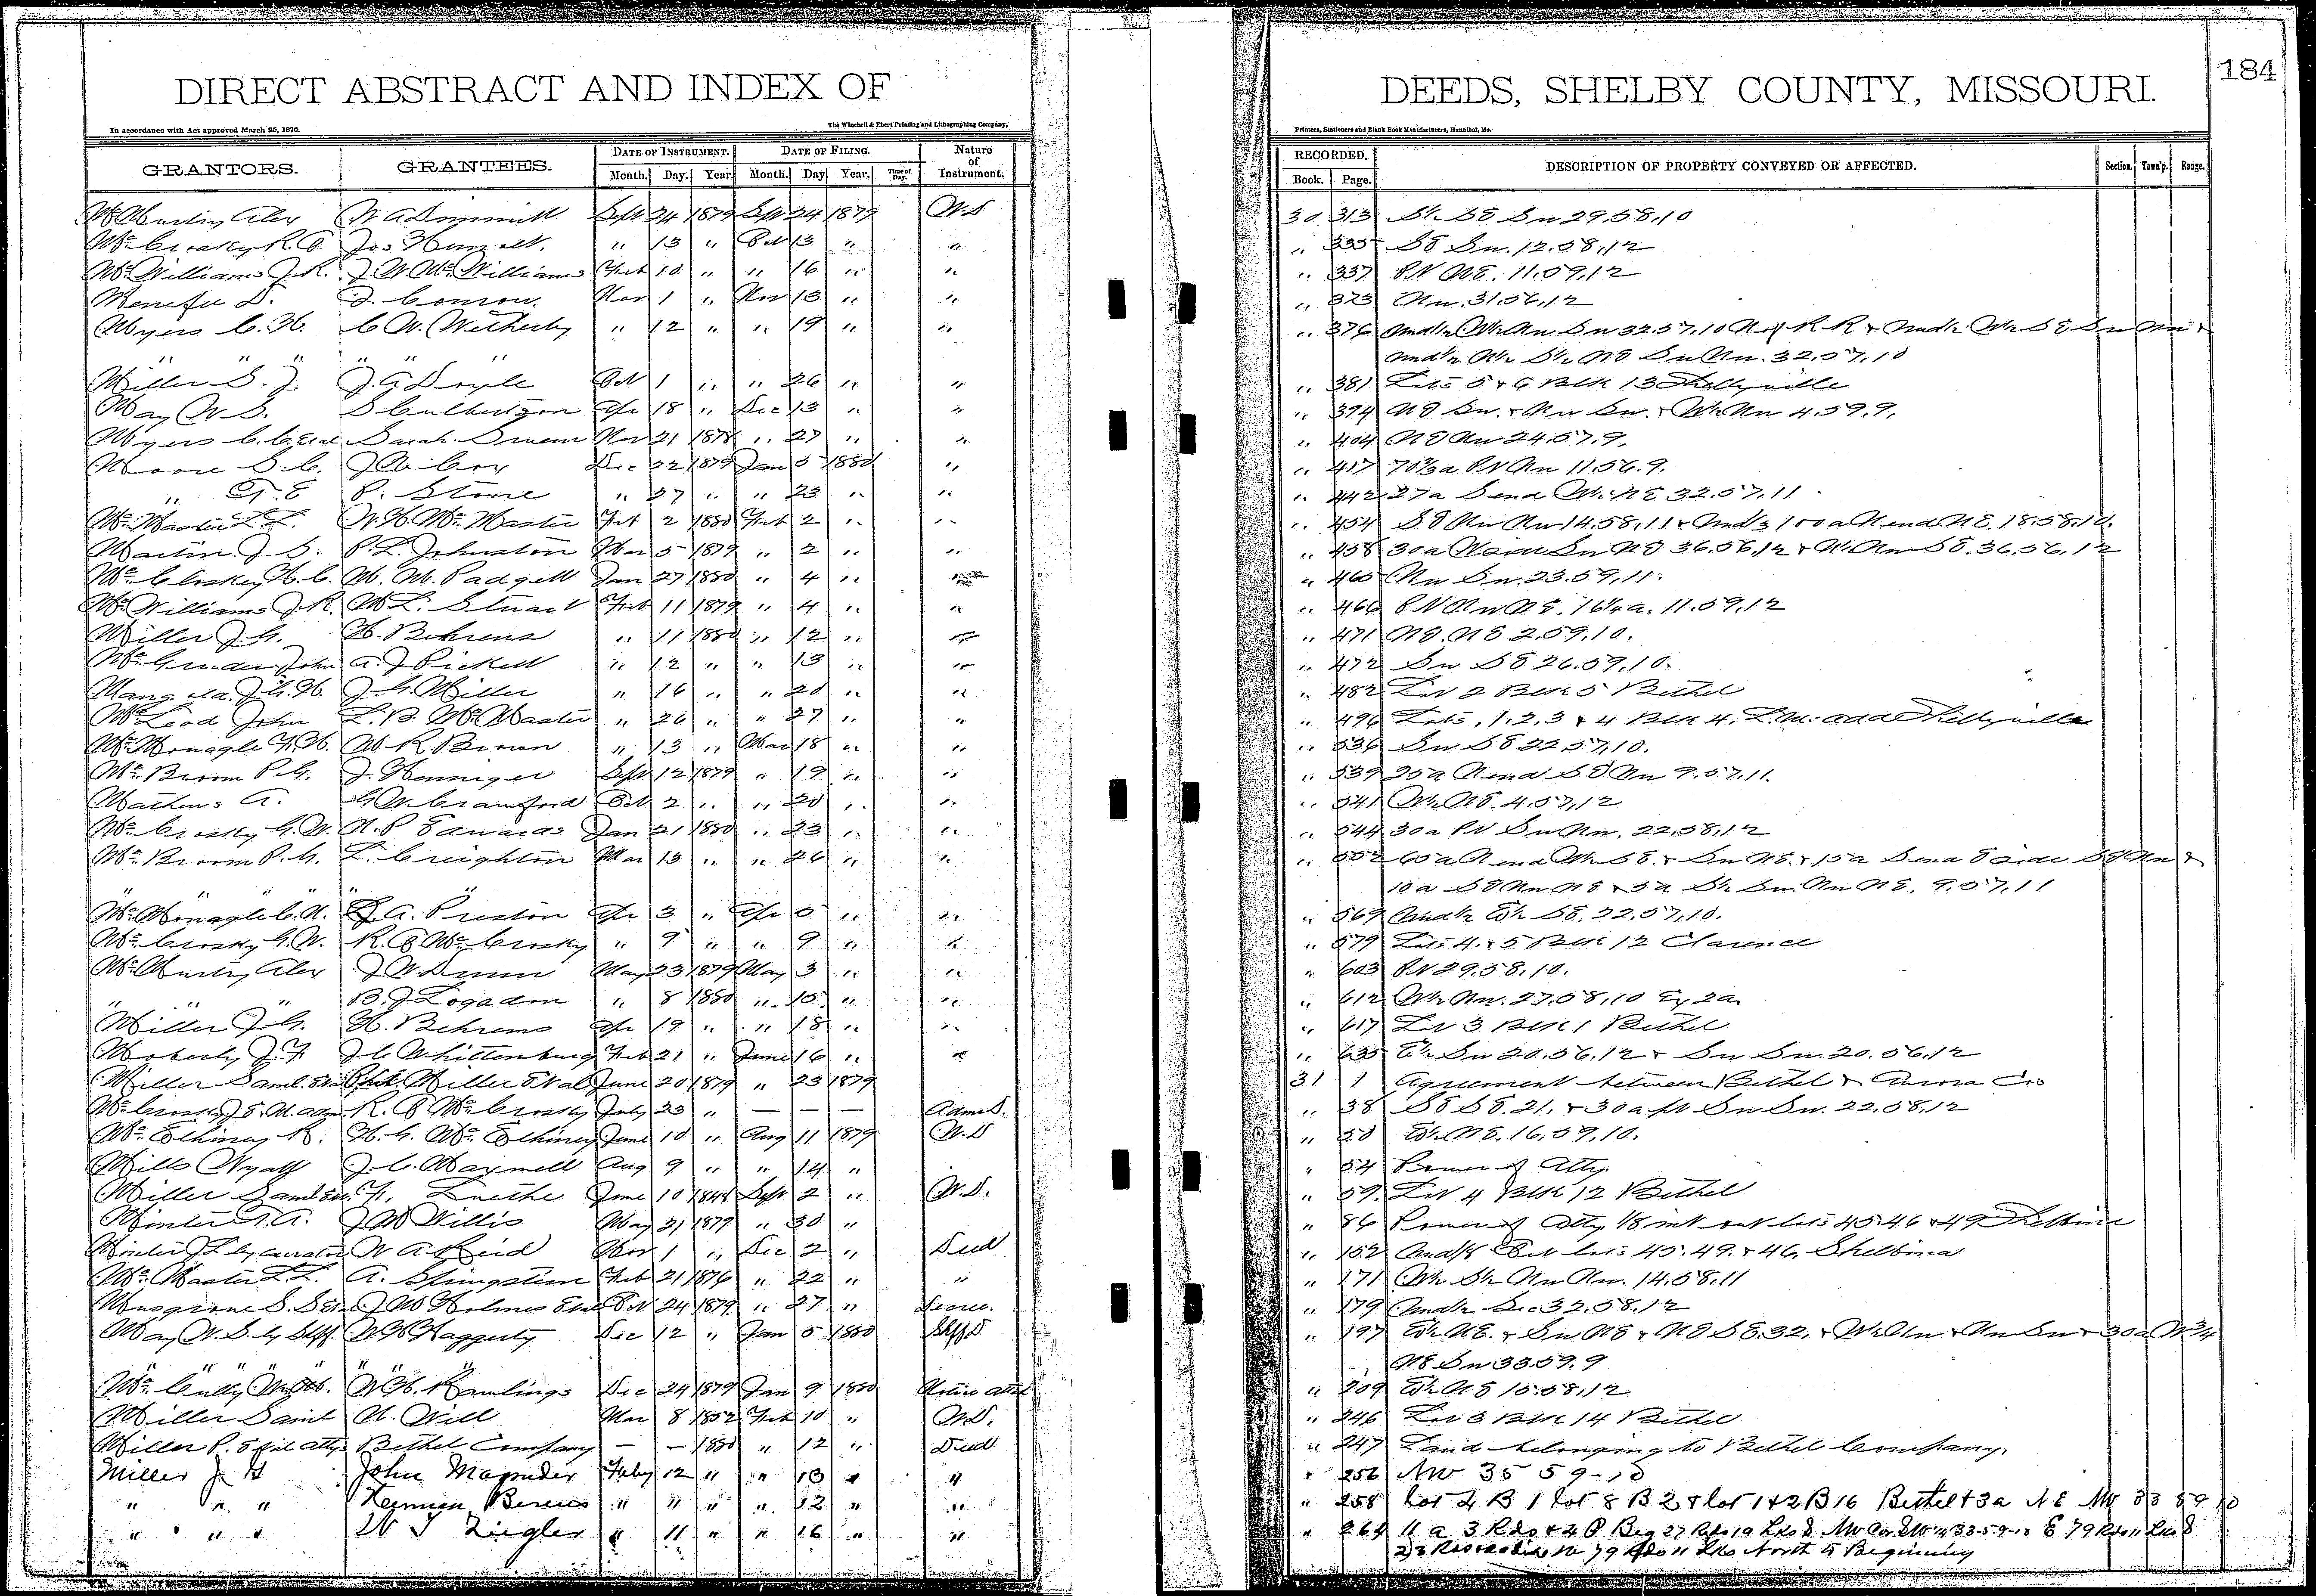 DIRECT ABSTRACT AND INDEX OF DEEDS, SHELBY COUNTY, MISSOURI.
184
In accordance with Act approved March 25, 1870. The Winchell & Ebert Printing and Lithographing Company, Printers, Stationers and Blank Book Manufacturers, Hannibal, Mo.
GRANTORS. GRANTEES. DATE OF INSTRUMENT. DATE OF FILING. Nature of Instrument. RECORDED. DESCRIPTION OF PROPERTY CONVEYED OR AFFECTED. Section. Town'p. Range.
Month. Day. Year. Month. Day. Year. Time of Day. Book. Page.
Alex Sept 24 1879 Sept 24 1879 W.D 30 313 SE Sw 29.58.10
McCrosky R.P. Jos " 13 " Oct 13 " " " 335 SE Sw. 12.58.12
McWilliams J.R. J.W. McWilliams Feb 10 " " 16 " " " 337 Pt NE. 11.59.12
Menefee D. J. Conron. Nov 1 " Nov 13 " " " 373 Nw. 31.56.12
Myers C.H. C.W. Witherby " 12 " " 19 " " " 376 Und½ W½ Nw Sw 32.57.10 N of R.R & Und½ W½ SE Sw Nw &
" " " " " " Und½ N½ S½ NE Sw Nw. 32.57.10
Miller S.J. J.A. Doyle Oct 1 " " 26 " " " 381 Lots 5 & 6 Blk 13 Shelbyville
May W.S. S Culbertson Apr 18 " Dec 13 " " " 394 NE Sw. & Nw Sw. & W½ Nw 4.59.9.
Myers C.C. Etal Sarah Nov 21 1878 " 27 " " " 404 NE Nw 24.57.9.
Moore S.C. J.W. Cox Dec 22 1879 Jan 5 1880 " " 417 70⅔a Pt Nw 11.56.9.
" T.E P. Stone " 27 " " 23 " " " 442 27a S end W½ NE 32.57.11
McMaster L.L. W.H. McMaster Feb 2 1880 Feb 2 " " " 454 SE Nw Nw 14.58.11 & Und⅓ 100a N end NE. 18.58.10.
Martin J.S. P.L. Johnston Mar 5 1879 " 2 " " " 458 30a W side Sw NE 36.56.12 & Nw SE. 36.56.12
McCloskey H.C. M.M. Padgett Jan 27 1880 " 4 " " " 465 Nw Sw. 23.59.11.
McWilliams J.R. M L. Stuart Feb 11 1879 " 4 " " " 466 Pt Nw NE. 16¼a. 11.59.12
Miller J.G. H. Behrens " 11 1880 " 12 " " " 471 NE. NE 2.59.10.
John A.J Pickett " 12 " " 13 " " " 472 Sw SE 26.59.10.
J.G.H. J.G. Miller " 16 " " 20 " " " 482 Lot 2 Blk 5 Bethel
McLeod John L.B. McMaster " 26 " " 27 " " " 496 Lots. 1.2.3 & 4 Blk 4. L.M. add Shelbyville
McMonagle F.H. M R. Brown " 13 " Mar 18 " " " 536 Sw SE 22.57.10.
McBroom P.G. J. Henniger Sept 12 1879 " 19 " " " 539 25a N end SE Nw 9.57.11.
Mathews A. G.W. Crawford Oct 2 " " 20 " " " 541 W½ NE. 4.57.12
McCrosky G.W. N.P Edwards Jan 21 1880 " 23 " " " 544 30a Pt Sw Nw. 22.58.12
McBroom P.G. L. Creighton Mar 13 " " 26 " " " 552 65a N end W½ SE. & Sw NE. & 15a S end E side SE Nw &
" " " " 10a SE Nw NE & 5a S½ Sw Nw NE. 9.57.11
McMonagle C.N. A. Preston Apr 3 " Apr 5 " " " 569 Und½ E½ SE. 22.57.10.
McCrosky G.W. R.P. McCrosky " 9 " " 9 " " " 579 Lots 4. & 5 Blk 12 Clarence
Alex J W Dunn May 23 1879 May 3 " " " 603 Pt 29.58.10.
" " " B.J Logsdon " 8 1880 " 15 " " " 612 W½ Nw. 27.58.10 Ex 2a
Miller J.G. H. Behrens Apr 19 " " 18 " " " 617 Lot 3 Blk 1 Bethel
Moberly J.F J.C Whittenburg Feb 21 " June 16 " " " 635 E½ Sw 20.56.12 & Sw Sw. 20.56.12
Miller Saml. Etal Phil. Miller Etal June 20 1879 " 23 1879 31 1 Agreement between Bethel & Aurora Cos
McCrosky J.E.N. adm. R.P McCrosky July 23 " — — — Adm D. " 38 SE SE. 21. & 30a pt Sw Sw. 22.58.12
McElhiney R. H.G. McElhiney June 10 " Aug 11 1879 W.D " 50 E½ NE. 16.59.10.
Mills Wyatt J.C. Maxwell Aug 9 " " 14 " " 54 Power of Atty.
Miller Saml F. Luethe June 10 1848 Sept 2 " W.D. " 59. Lot 4 Blk 12 Bethel
Minter T.A. J M Willis May 21 1879 " 30 " " 86 Power of Atty 1/8 int out lots 45.46 & 49 Shelbina
Minter J.L by curator W A Reid Nov 1 " Dec 2 " Deed " 152 Und 1/8 Out lots 45.49. & 46, Shelbina
McMaster L.L. A. Springsteen Feb 21 1876 " 22 " " " 171 W½ S½ Nw Nw. 14.58.11
Musgrove S. J M Holmes Etal Oct 24 1879 " 27 " Decree. " 179 Und½ Sec 32.58.12
May W.S. by Shff. W H Haggerty Dec 12 " Jan 5 1880 Shff D " 197 E½ NE. & Sw NE & NE SE.32. & W½ Nw & Nw Sw & 30a W¾
" " " " " " " NE Sw 33.59.9
McCully W.H. Rawlings Dec 24 1879 Jan 9 1880 Notice attch " 209 E½ NE 15.58.12
Miller Saml N. Will Mar 8 1852 Feb 10 " W.D. " 246 Lot 3 Blk 14 Bethel
Miller P. Etal attys Bethel Company — — 1880 " 12 " Deed " 247 Land belonging to Bethel Company.
Miller J G John Magruder Feby 12 " " 13 " " " 256 NW 35 59-10
" " " Herman " 11 " " 12 " " " 258 Lot 4 B 1 lot 8 B 2 & lot 1 & 2 B 16 Bethel & 3a NE NW 33 59 10
" " " W T Ziegler " 11 " " 16 " " " 264 11 a 3 Rds & 4 P Beg 27 Rds 19 Lks S. NW Cor SW¼ 33-59-10 E 79 Rds 11 Lks S
79 Rds 11 Lks North to Beginning